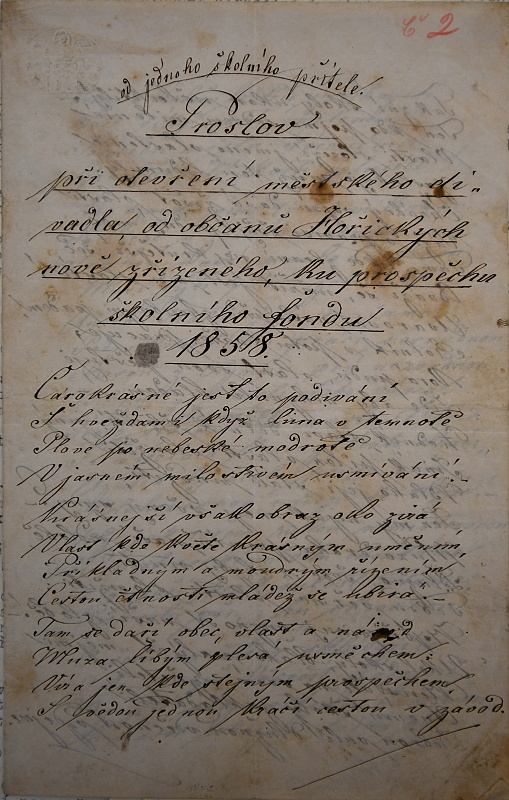 Č 2
od jednoho školního přítele.
Proslov
při otevření městského di„
vadla, od občanů Hořických
nově zřízeného, ku prospěchu
školního fondu
1858.
Čarokrásné jest to podívání
S hvězdami když luna v temnotě
Plove po nebeské modrotě
V jasném milostivém usmívání! –
Krásnejší však obraz oko zívá
Vlast kde květe krásným uměním
Příkladným a moudrým řízením
Cestou čtnosti mládež se ubírá –
Tam se daří obec, vlast a národ
Muza libým plesá usměchem:
Víra jen kde stejným prospěchem
S vědou jednou kráčí cestou v závod.